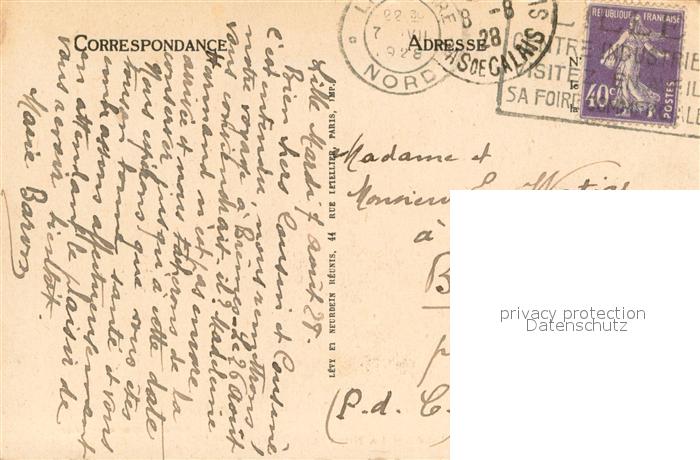 CORRESPONDANCE
ADRESSE
Lille Mardi 7 août 28.
Bien chers Cousin et Cousine
c'est entendu, nous remettrons
notre voyage à Bruges. Le 26 août
vous conviendrait-il? Madeleine
Armand n'est pas encore
arrivé et nous tâcherons de la
conserver jusqu'à cette date
Nous espérons que vous êtes
tous en bonne santé et vous
embrassons affectueusement
en attendant le plaisir de
vous revoir bientôt.
Marie Baron
LÉVY ET NEURDEIN RÉUNIS, 44 RUE LETELLIER, PARIS, IMP.
Madame et
Monsieur
à
B
P
(P.d.C.
NORD
1928
8
28
PAS DE CALAIS
CENTRE INDUSTRIEL
VISITEZ
SA FOIRE COMMERCIALE
RÉPUBLIQUE FRANÇAISE
40c
POSTES
privacy protection
Datenschutz